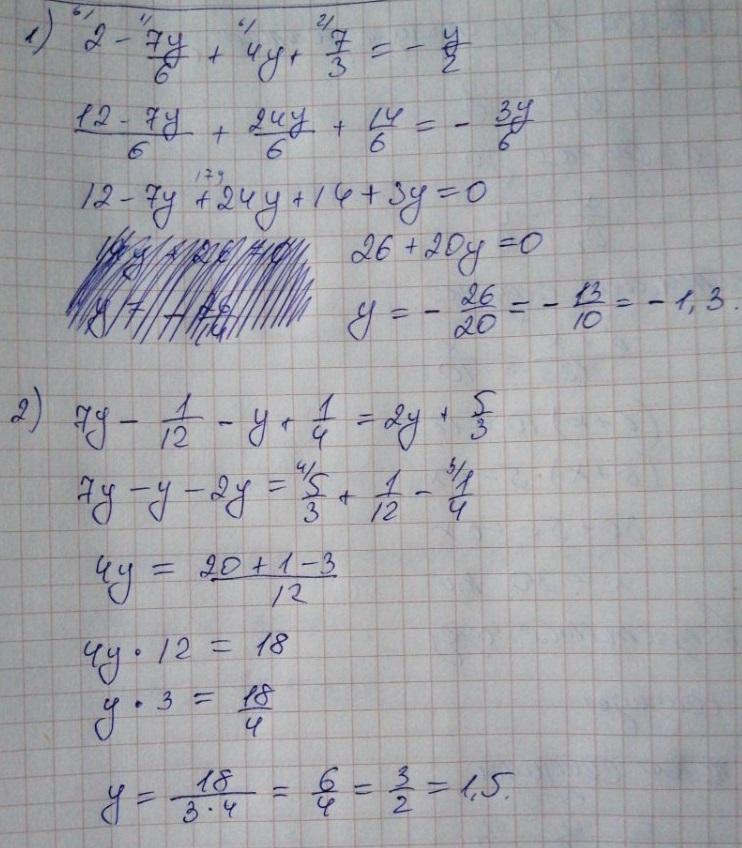 1) 6/ 2 - 1/ 7y/6 + 6/ 4y + 2/ 7/3 = - y/2
12 - 7y/6 + 24y/6 + 14/6 = - 3y/6
12 - 7y + 24y + 14 + 3y = 0
17y
26 + 20y = 0
y = - 26/20 = - 13/10 = - 1,3.
2) 7y - 1/12 - y + 1/4 = 2y + 5/3
7y - y - 2y = 4/ 5/3 + 1/12 - 3/ 1/4
4y = 20 + 1 - 3/12
4y · 12 = 18
y · 3 = 18/4
y = 18/3·4 = 6/4 = 3/2 = 1,5.